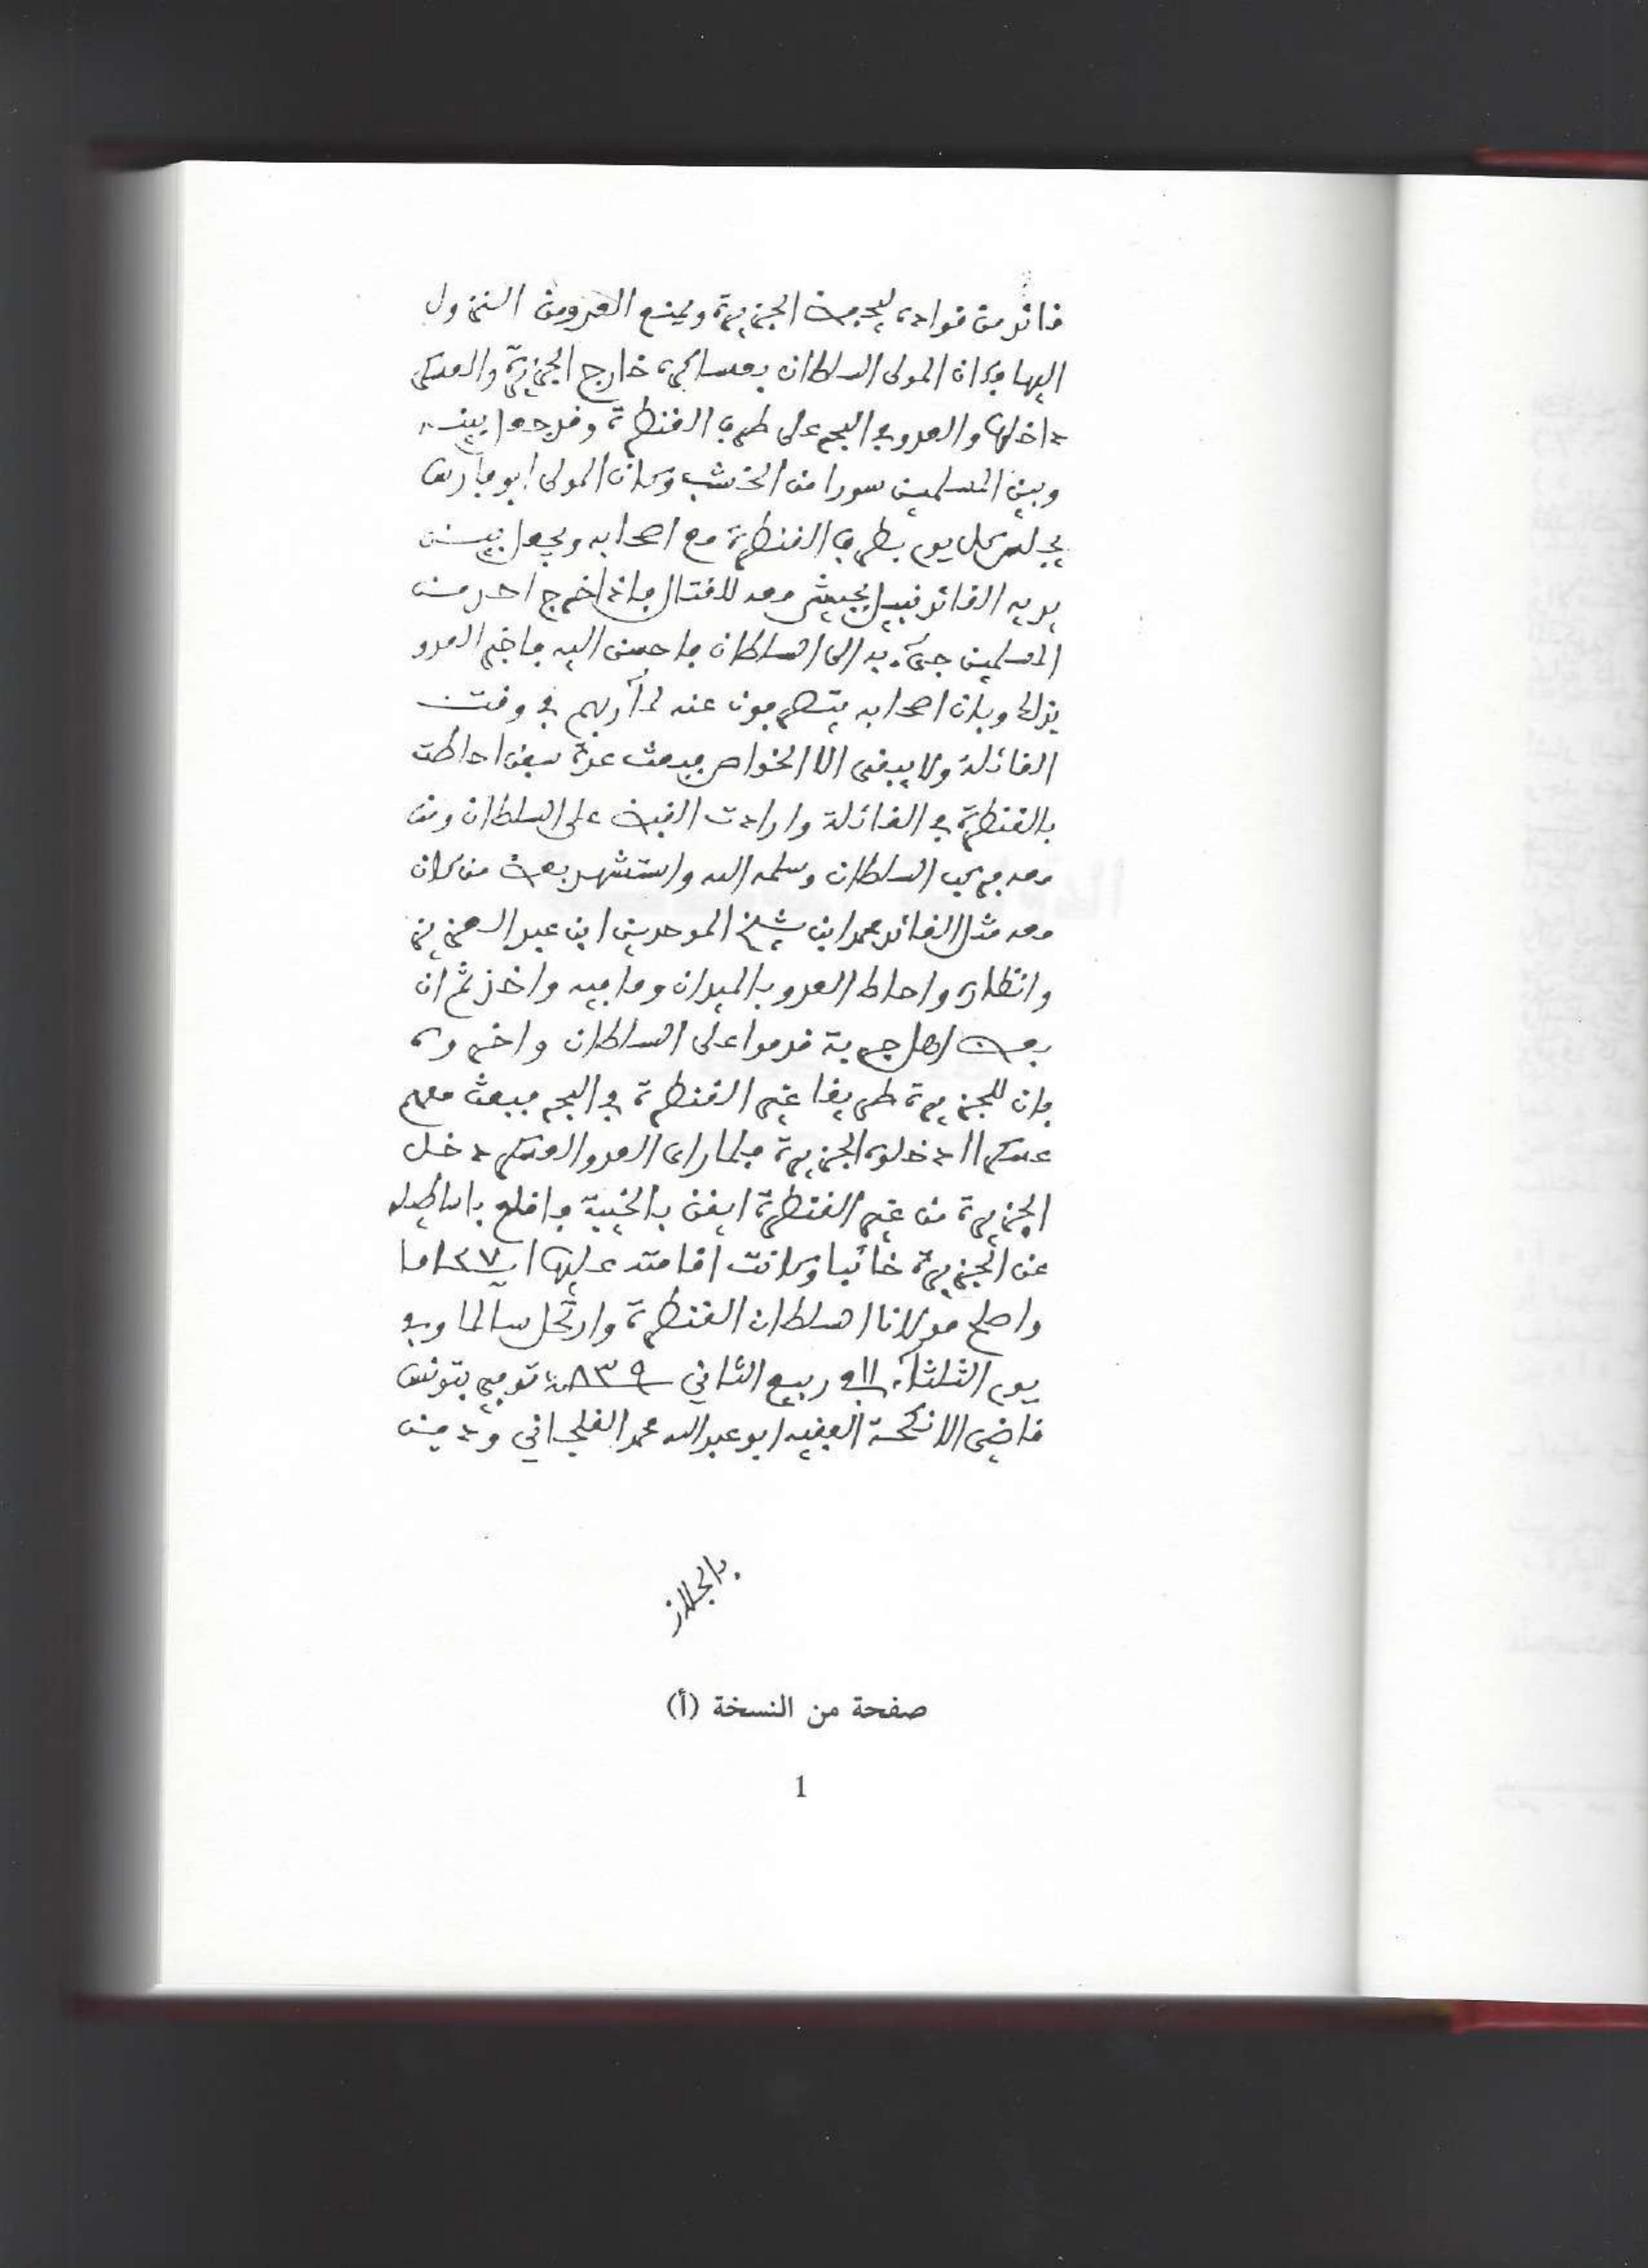 قائد من قواده ليحرس الجزيرة ويمنع العدو من النزول
اليها وكان المولى السلطان بعساكره خارج الجزيرة والعسكر
داخلها والعدو في البحر على طرف القنطرة وقد جعلوا بينهم
وبين المسلمين سورا من الخشب وكان المولى ابو فارس
يجلس كل يوم بطرف القنطرة مع اصحابه ويجعل بين
يديه القائد نبيل بجيش معه للقتال فاذا خرج احد من
المسلمين جيء به الى السلطان فاحسن اليه فاخبر العدو
بذلك وبان اصحابه يتفرقون عنه لمآربهم في وقت
القائلة ولا يبقى الا الخواص فبعث عدة سفن احاطت
بالقنطرة في القائلة وارادت القبض على السلطان ومن
معه فركب السلطان وسلمه الله واستشهد بعض من كان
معه مثل القائد محمد ابن شيخ الموحدين ابن عبد العزيز
وانظاره واحاط العدو بالميدان وما فيه واخذ ثم ان
بعض اهل جربة قدموا على السلطان واخبروه
بان للجزيرة طريقا غير القنطرة في البحر فبعث معهم
عسكرا ادخلوه الجزيرة فلما راى العدو العسكر دخل
الجزيرة من غير القنطرة ايقن بالخيبة واقلع باساطيله
عن الجزيرة خائبا وكانت اقامته عليها ٢٧ يوما
واصلح مولانا السلطان القنطرة وارتحل سالما وفي
يوم الثلثاء ١١ في ربيع الثاني سنة ٨٣٩ توفي بتونس
قاضي الانكحة الفقيه ابو عبد الله محمد القلجاني ودفن
بالجلاز
صفحة من النسخة (أ)
1